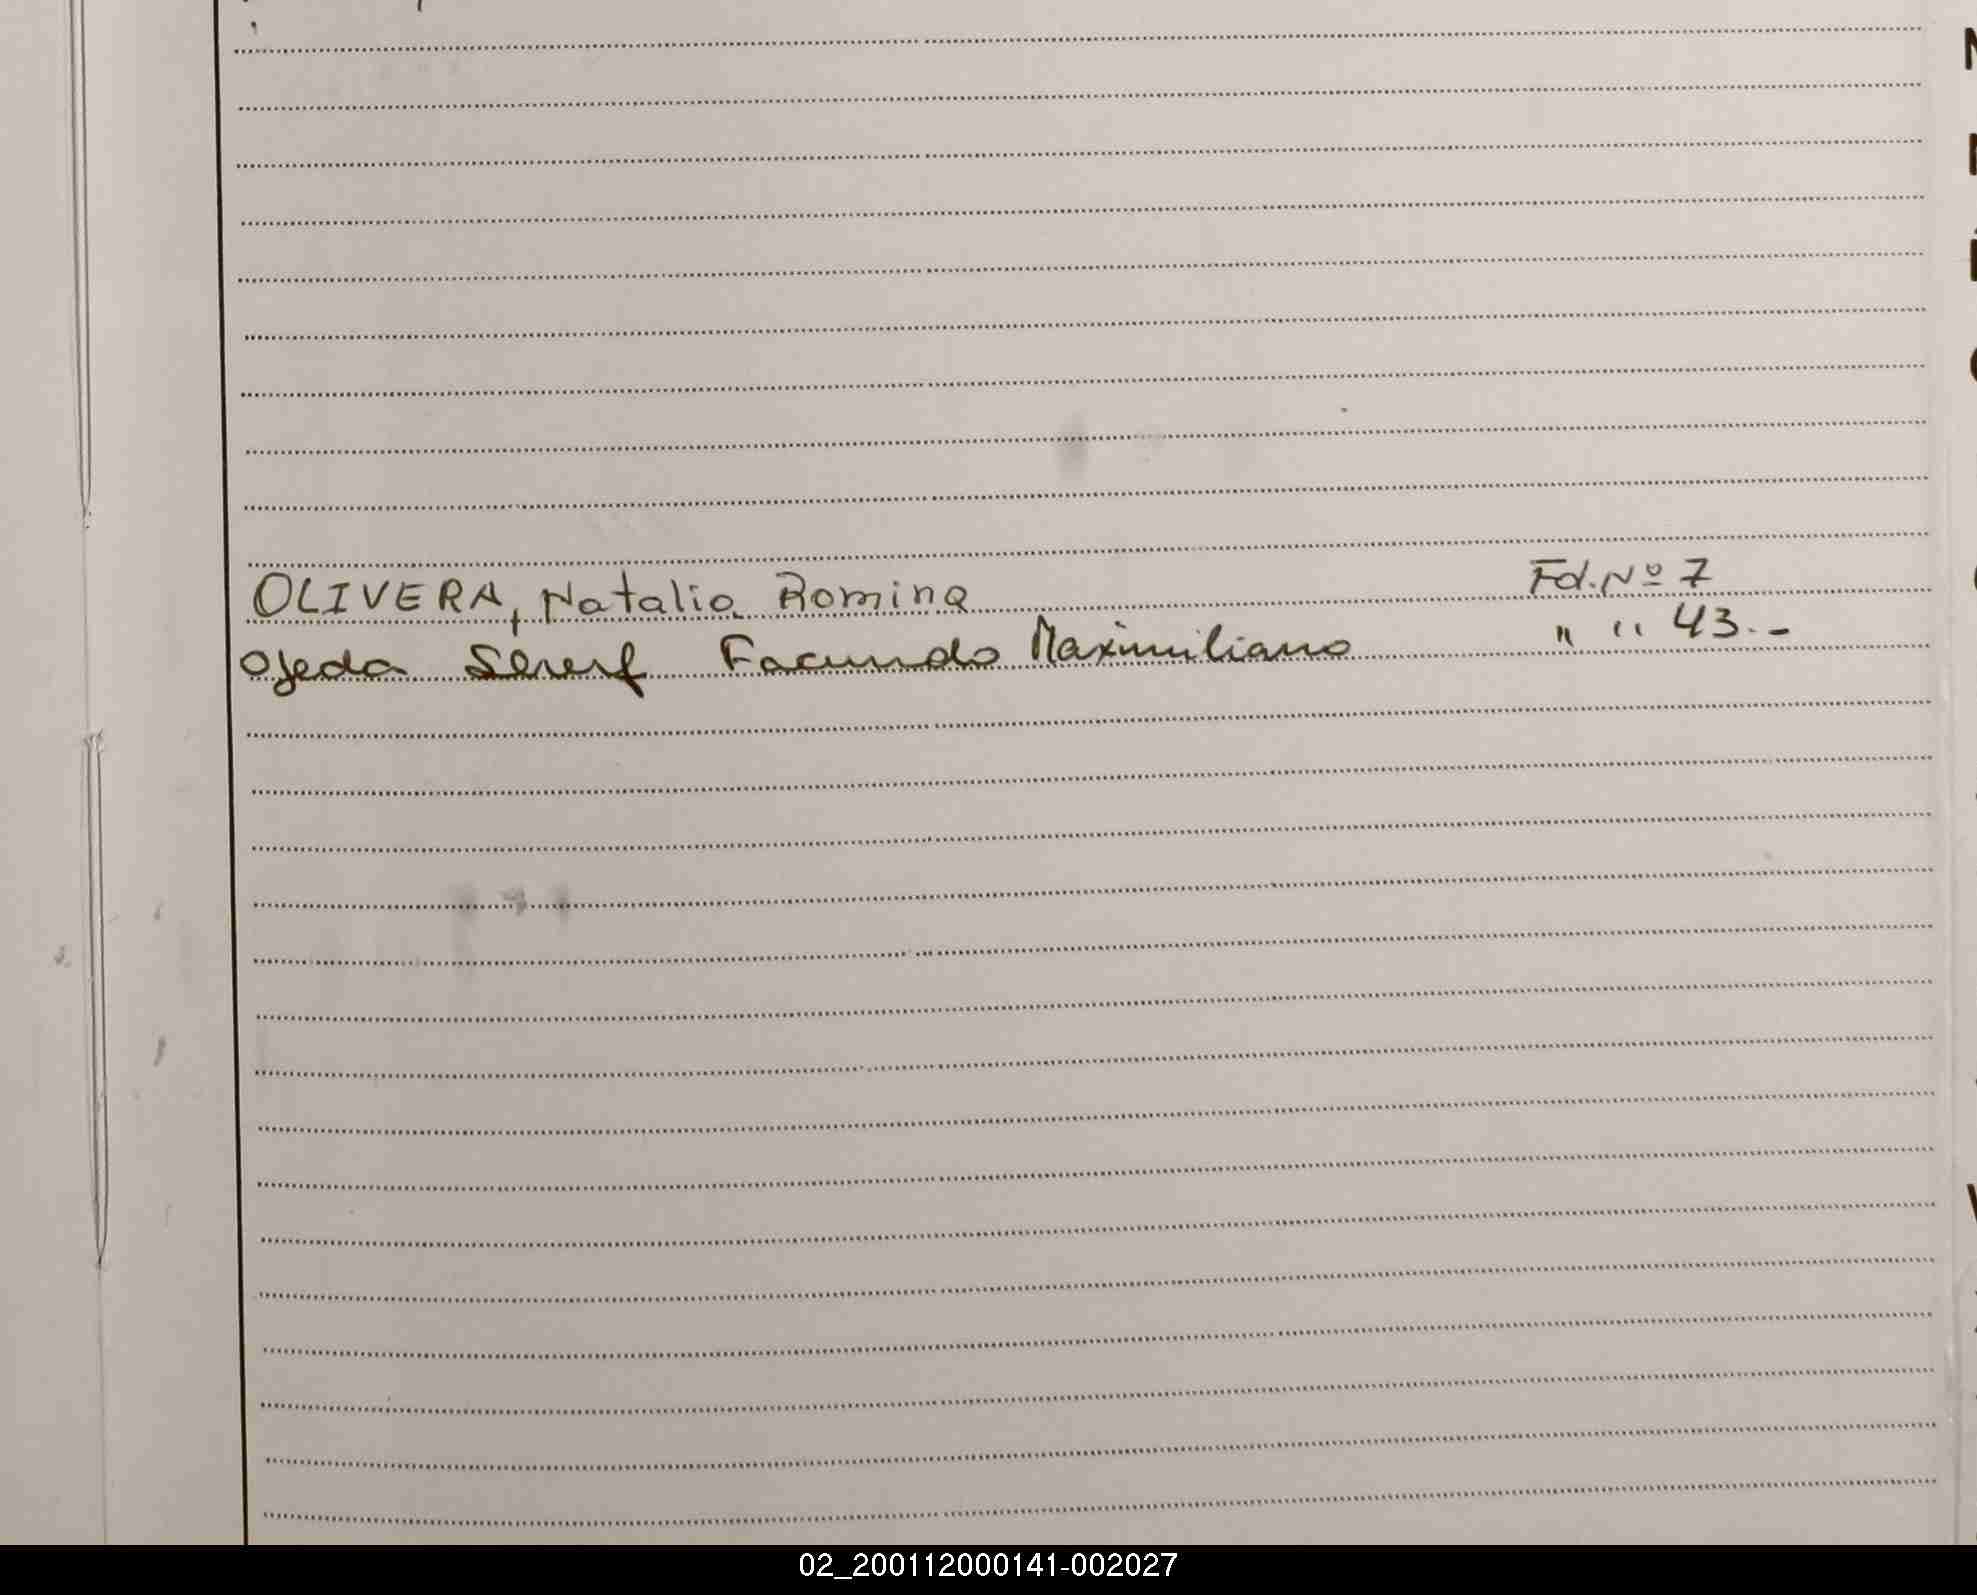 OLIVERA, Natalia Romina Fol. Nº 7
Ojeda Facundo Maximiliano " " 43.-
02_200112000141-002027